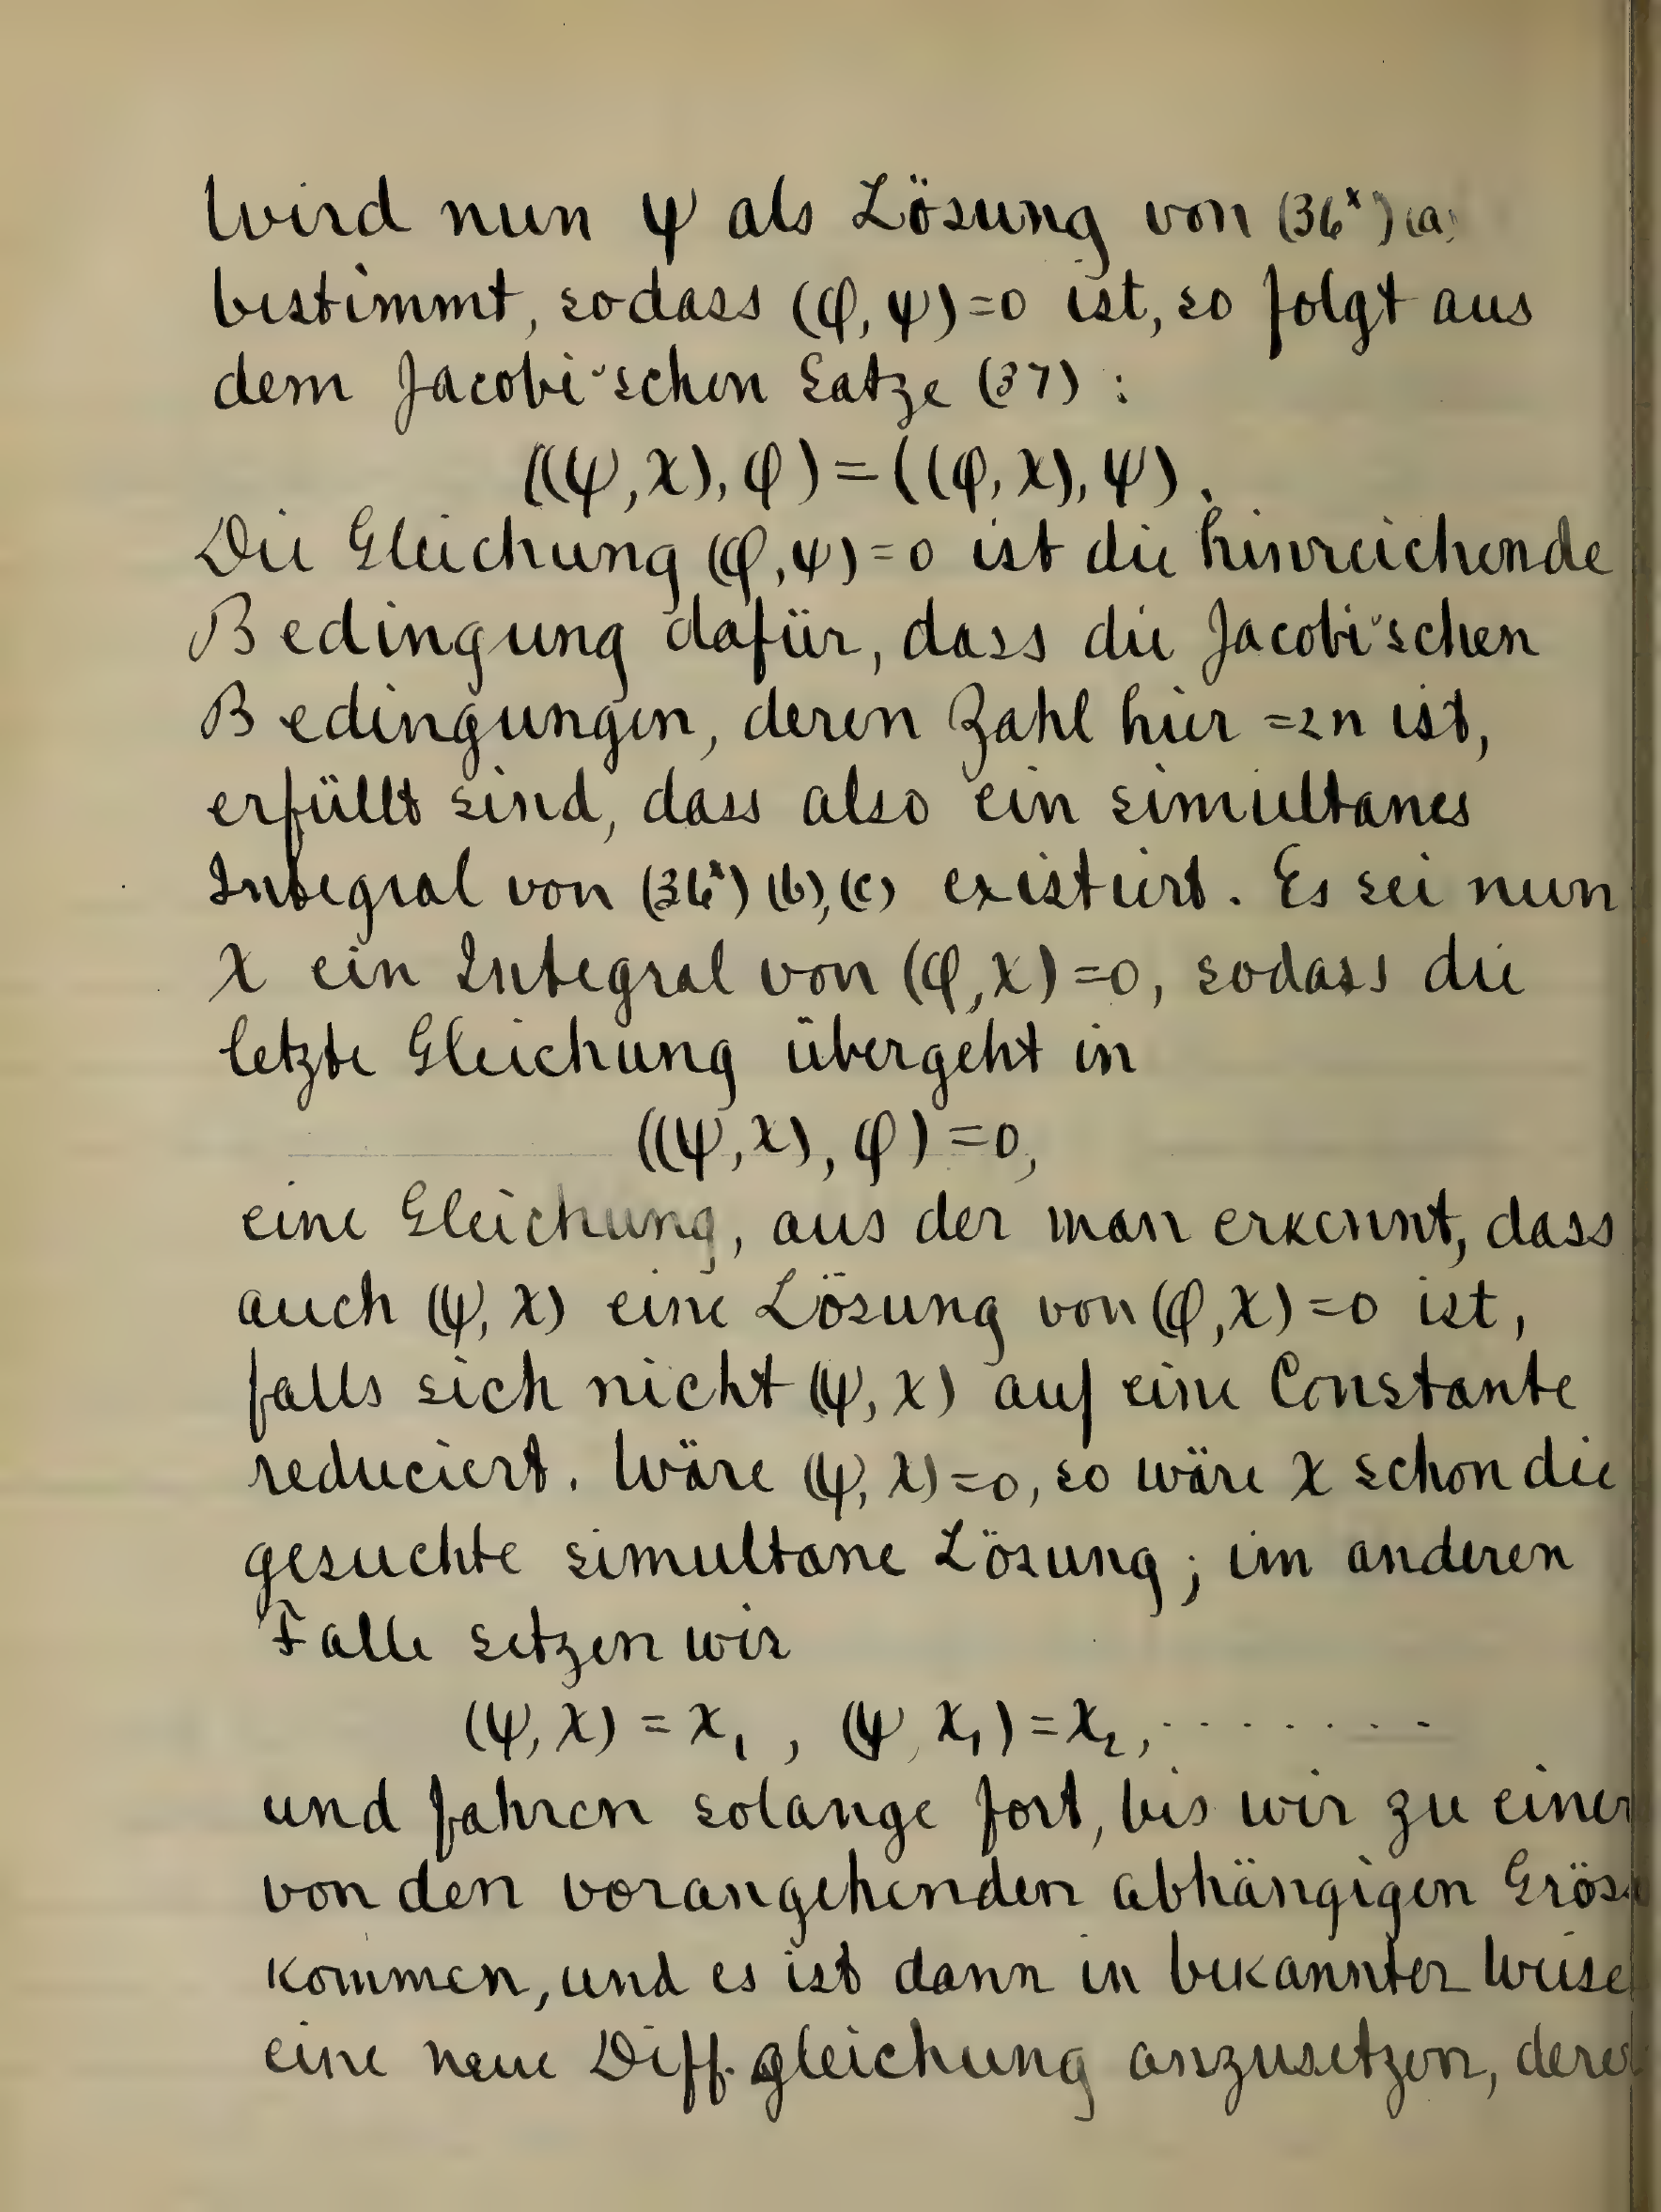 Wird nun ψ als Lösung von (36ˣ) (a)
bestimmt, sodass (φ, ψ)=0 ist, so folgt aus
dem Jacobi'schen Satze (37) :
((ψ, χ), φ) = ((φ, χ), ψ).
Die Gleichung (φ, ψ)=0 ist die hinreichende
Bedingung dafür, dass die Jacobi'schen
Bedingungen, deren Zahl hier =2n ist,
erfüllt sind, dass also ein simultanes
Integral von (36ˣ) (b), (c) existiert. Es sei nun
χ ein Integral von (φ, χ)=0, sodass die
letzte Gleichung übergeht in
((ψ, χ), φ)=0,
eine Gleichung, aus der man erkennt, dass
auch (ψ, χ) eine Lösung von (φ, χ)=0 ist,
falls sich nicht (ψ, χ) auf eine Constante
reduciert. Wäre (ψ, χ)=0, so wäre χ schon die
gesuchte simultane Lösung; im anderen
Falle setzen wir
(ψ, χ) = χ₁ , (ψ, χ₁) = χ₂, ........
und fahren solange fort, bis wir zu einer
von den vorangehenden abhängigen Grös
kommen, und es ist dann in bekannter Weise
eine neue Diff.gleichung anzusetzen, dere